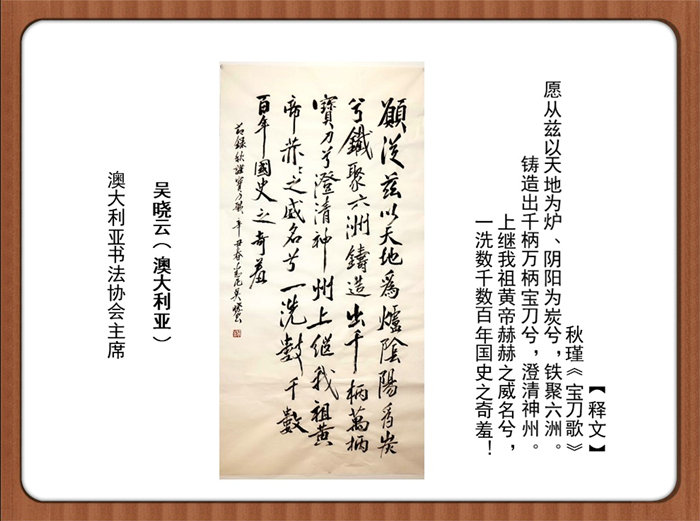 【释文】
秋瑾《宝刀歌》
愿从兹以天地为炉、阴阳为炭兮，铁聚六洲。
铸造出千柄万柄宝刀兮，澄清神州。
上继我祖黄帝赫赫之威名兮，
一洗数千数百年国史之奇羞！
願從茲以天地爲爐陰陽爲炭
兮鐵聚六洲鑄造出千柄萬柄
寶刀兮澄清神州上继我祖黄
帝赫〻之威名兮一洗數千數
百年國史之奇羞
节録秋瑾寶刀歌辛丑春吴曉云
吴晓云（澳大利亚）
澳大利亚书法协会主席